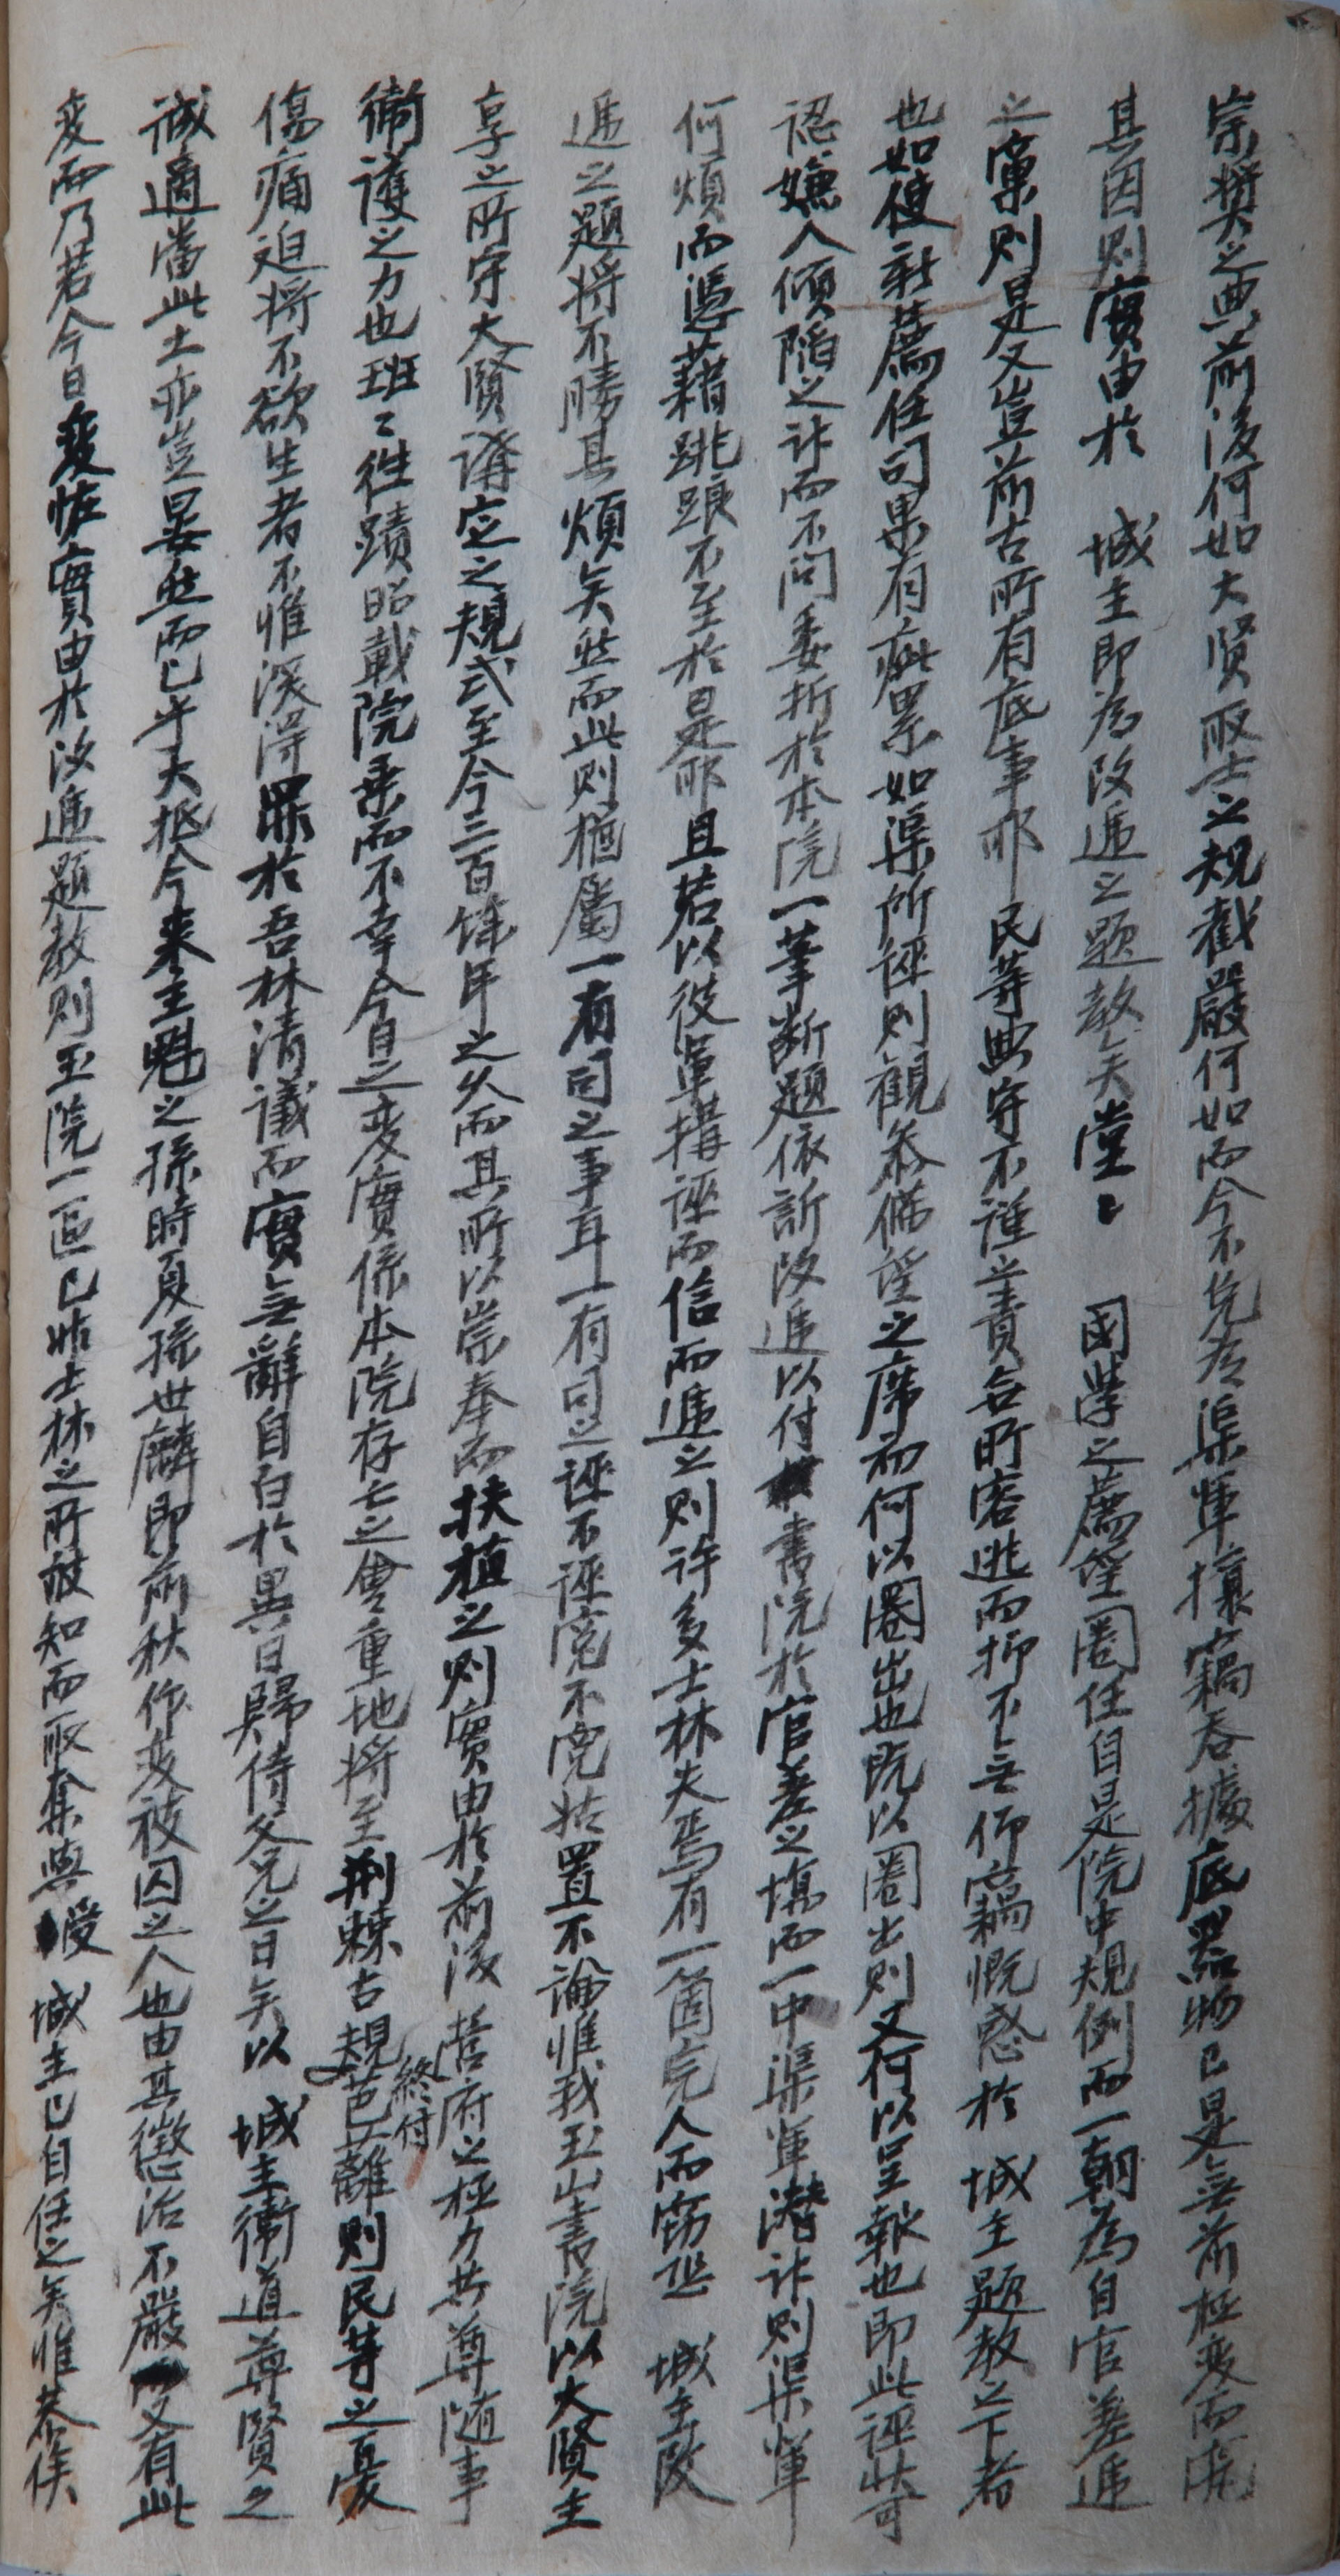 崇奬之典前後何如大賢取士之規截嚴何如而今不免爲渠輩攘竊呑據底器物已是無前極變而究
其因則實由於 城主卽爲改遞之題敎矣堂〻 國學之薦望圈任自是院中規例而一朝爲自官差遞
之窠則是又豈前古所有底事耶 民等典守不謹之責無所容逃而抑不無仰竊慨惑於 城主題敎之下者
也如使新薦任司果有疵累如渠所誣則觀參備望之席初何以圈出也旣以圈出則又何以呈報也卽此誣狀可
認嫌人傾陷之計而不問委折於本院一筆斷題依訴改遞以付書院於官差之塲而一中渠輩潛計則渠輩
何煩而憑藉跳踉不至於是耶且若以彼輩搆誣而信而遞之則許多士林夫焉有一箇完人而窃恐 城主改
遞之題將不勝其煩矣然而此則猶屬一有司之事耳一有司之誣不誣寃不寃姑置不論惟我玉山書院以大賢主
享之所守大賢講定之規式至今三百餘年之久而其所以崇奉而扶植之則實由於前後 營府之極力共尊隨事
衛護之力也班〻往蹟昭載院乘而不幸今日之變實係本院存亡之會重地將至荆棘古規終付芭籬則民等之憂
傷痛迫將不欲生者不惟深得罪於吾林淸議而實無辭自白於異日歸侍父兄之日矣以 城主衛道尊賢之
誠適當此土亦豈晏然而已乎大抵今來主魁之孫時夏孫世麟卽前秋作變被囚之人也由其懲治不嚴又有此
変而乃若今日変怪實由於改遞題敎則玉院一區已非士林之所敢知而取奪與受 城主已自任之矣惟恭俟